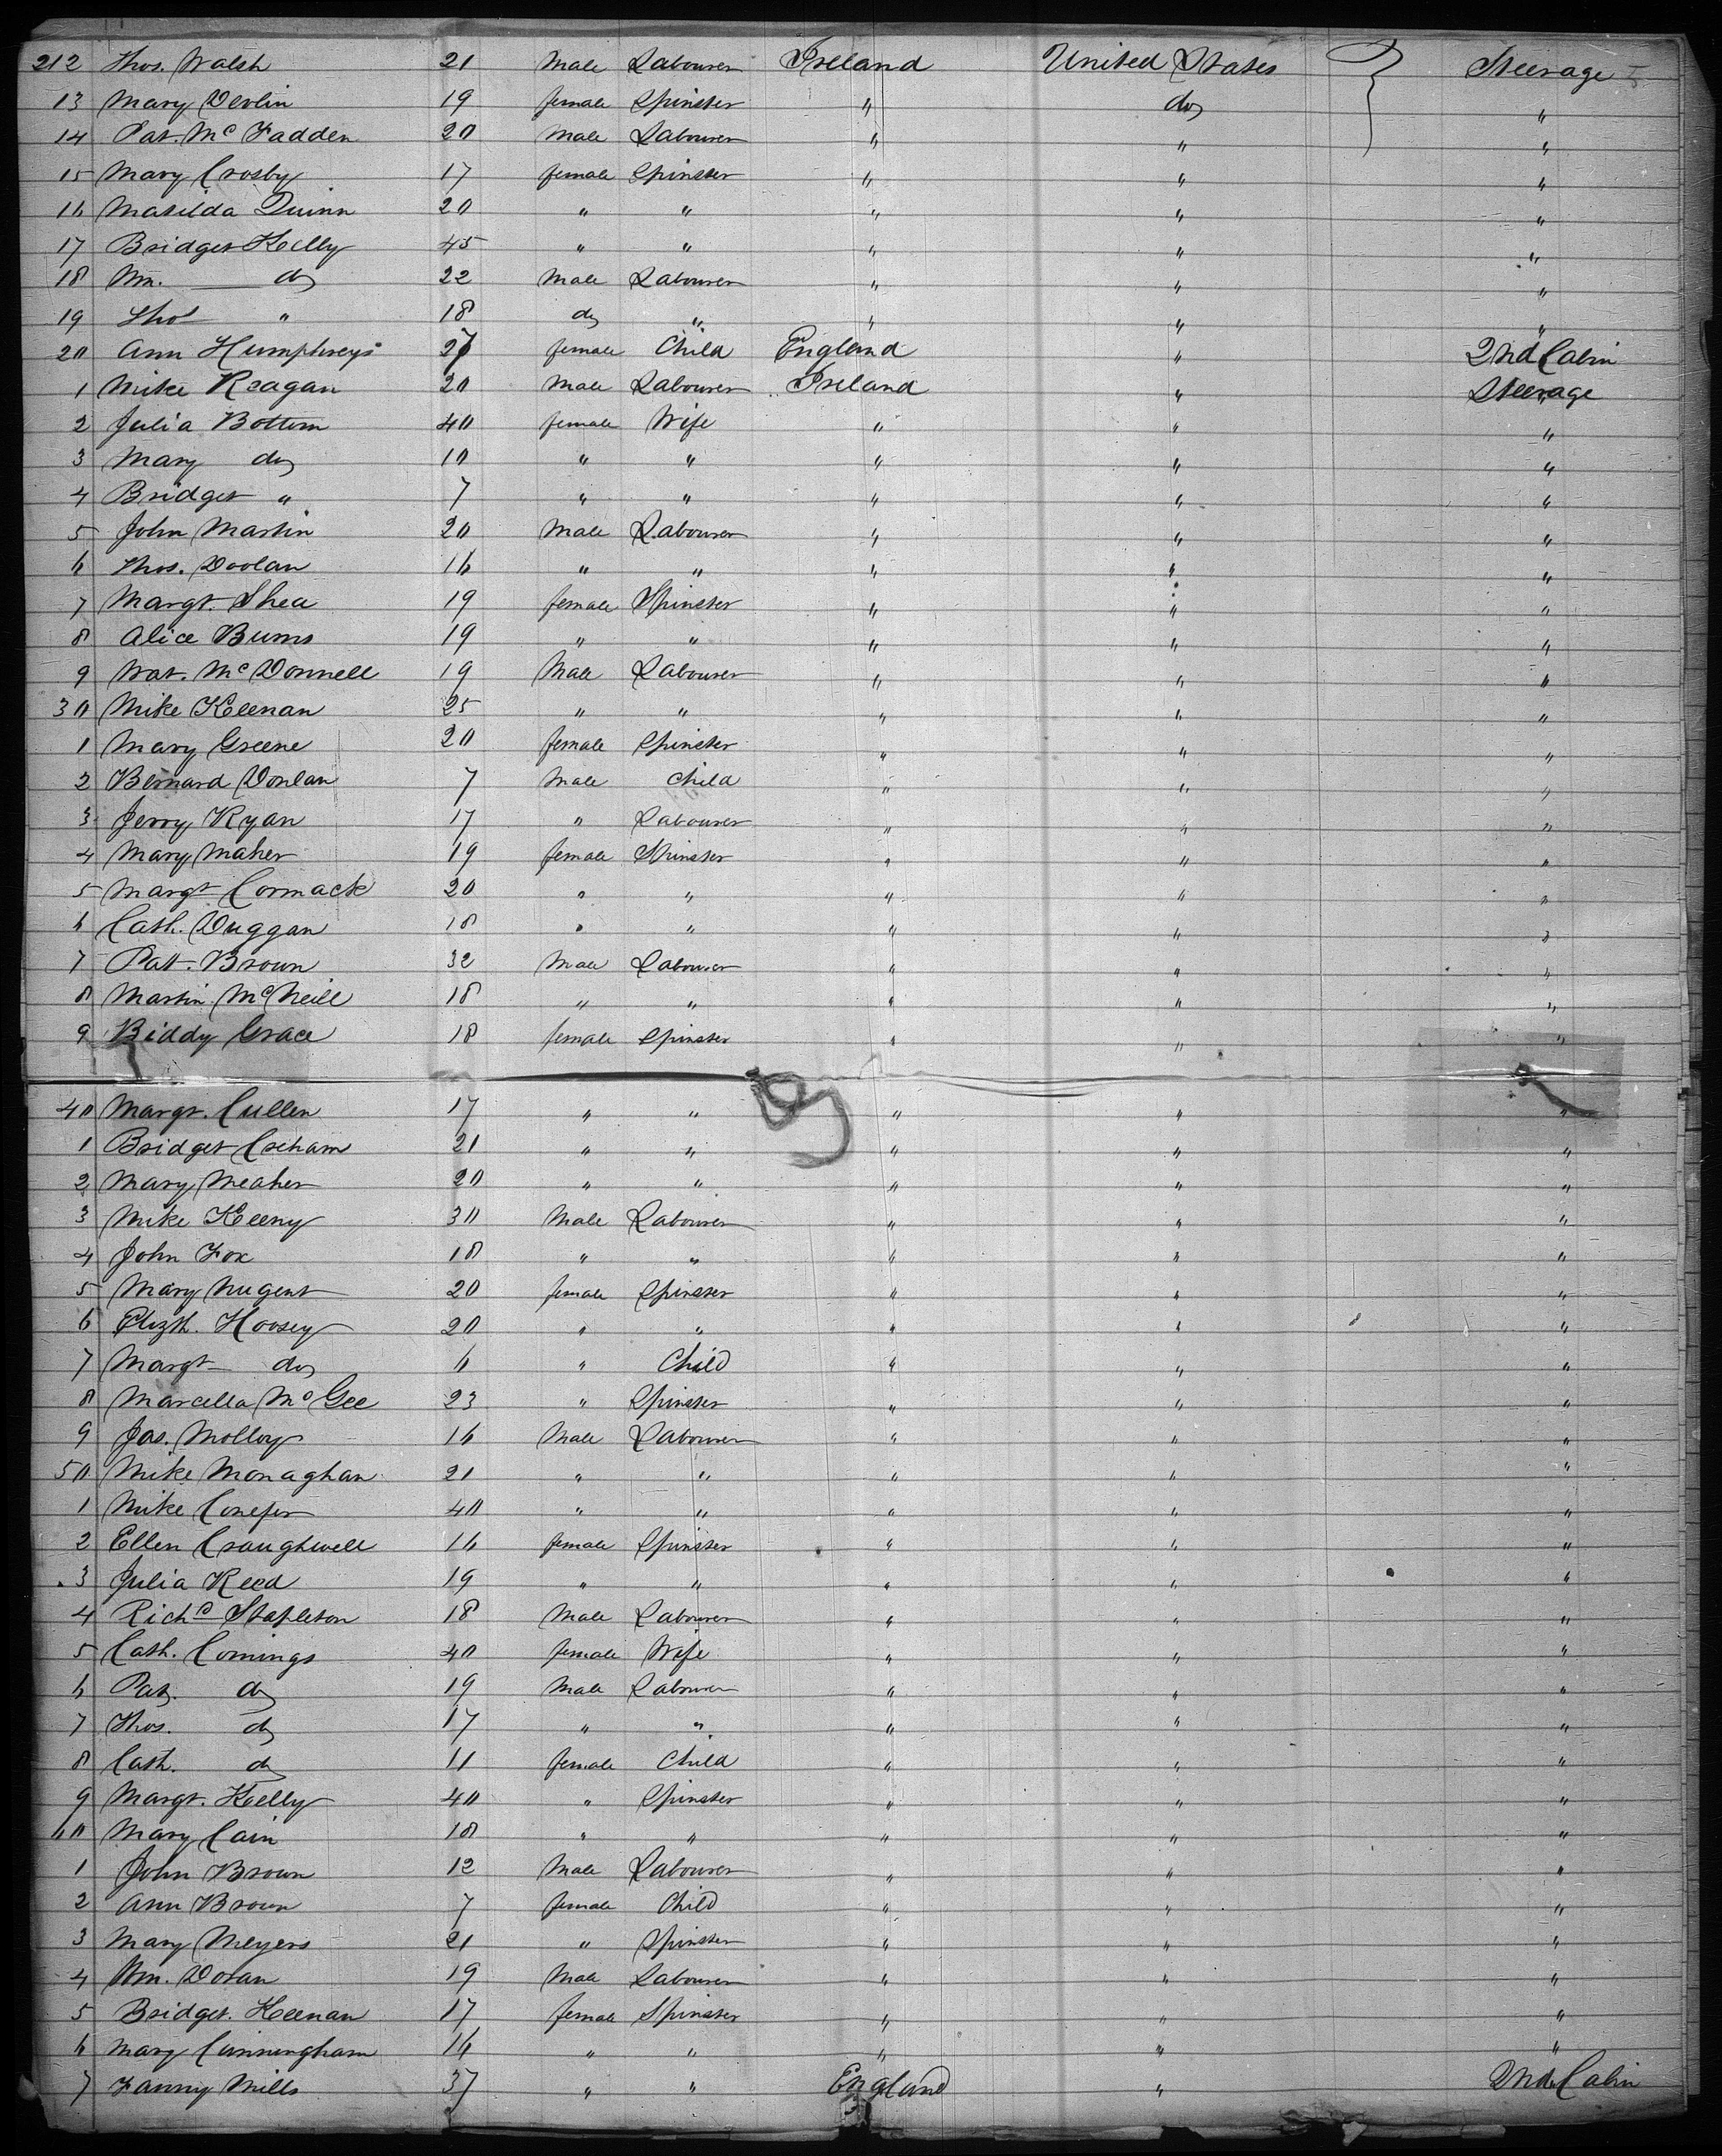 212 Thos. Walsh 21 Male Labourer Ireland United States Steerage
13 Mary Devlin 19 female Spinster " do "
14 Pat. McFadden 20 Male Labourer " " "
15 Mary Crosby 17 female Spinster " " "
16 Matilda Quinn 20 " " " " "
17 Bridget Kelly 45 " " " " "
18 Wm. do 22 Male Labourer " " "
19 Thos " 18 do " " " "
20 Ann Humphreys 27 female Child England " 2nd Cabin
1 Mike Reagan 20 Male Labourer Ireland " Steerage
2 Julia Bottom 40 female Wife " " "
3 Mary do 10 " " " " "
4 Bridget " 7 " " " " "
5 John Martin 20 Male Labourer " " "
6 Thos. Doolan 16 " " " " "
7 Margt. Shea 19 female Spinster " " "
8 Alice Burns 19 " " " " "
9 Wat. McDonnell 19 Male Labourer " " "
30 Mike Keenan 25 " " " " "
1 Mary Greene 20 female Spinster " " "
2 Bernard Donlan 7 Male Child " " "
3 Jerry Ryan 17 " Labourer " " "
4 Mary Maher 19 female Spinster " " "
5 Margt Cormack 20 " " " " "
6 Cath. Duggan 18 " " " " "
7 Patt. Brown 32 Male Labourer " " "
8 Martin McNeill 18 " " " " "
9 Biddy Grace 18 female Spinster " " "
40 Margt. Cullen 17 " " " " "
1 Bridget Creham 21 " " " " "
2 Mary Meaher 20 " " " " "
3 Mike Keeny 30 Male Labourer " " "
4 John Fox 18 " " " " "
5 Mary Nugent 20 female Spinster " " "
6 Elizth. Hoosey 20 " " " " "
7 Margt do 6 " Child " " "
8 Marcella McGee 23 " Spinster " " "
9 Jas. Molloy 16 Male Labourer " " "
50 Mike Monaghan 21 " " " " "
1 Mike 40 " " " " "
2 Ellen Craughwell 16 female Spinster " " "
3 Julia Reed 19 " " " " "
4 Richd Stapleton 18 Male Labourer " " "
5 Cath. Comings 40 female Wife " " "
6 Pat. do 19 Male Labourer " " "
7 Thos. do 17 " " " " "
8 Cath. do 11 female Child " " "
9 Margt. Kelly 40 " Spinster " " "
60 Mary Cain 18 " " " " "
1 John Brown 12 Male Labourer " " "
2 Ann Brown 7 female Child " " "
3 Mary Meyers 21 " Spinster " " "
4 Wm. Doran 19 Male Labourer " " "
5 Bridget. Keenan 17 female Spinster " " "
6 Mary Cunningham 16 " " " " "
7 Fanny Mills 37 " " England " 2nd Cabin